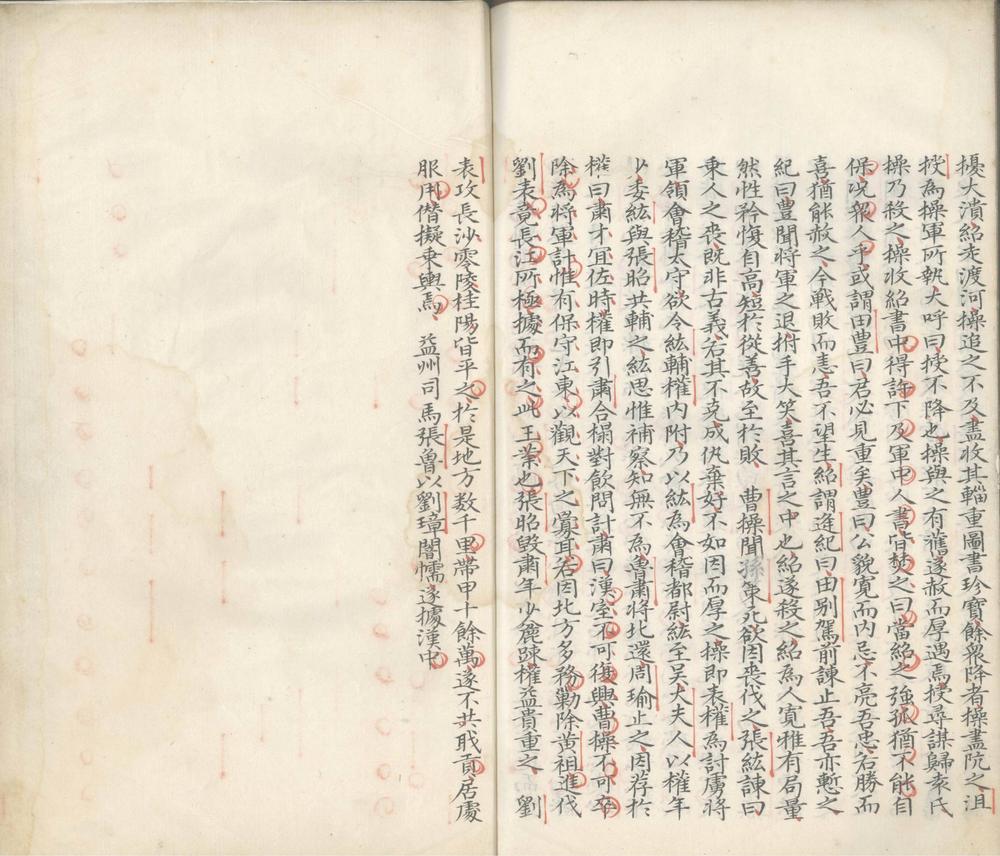 擾大潰紹走渡河操追之不及盡收其輜重圖書珍寶餘衆降者操盡阬之沮
授為操軍所執大呼曰授不降也操與之有舊遂赦而厚遇焉授尋謀歸袁氏
操乃殺之操收紹書中得許下及軍中人書皆焚之曰當紹之強孤猶不能自
保况衆人乎或謂田豊曰君必見重矣豊曰公貌寛而内忌不亮吾忠若勝而
喜猶能赦之今戰敗而恚吾不望生紹謂逄紀曰田别駕前諫止吾吾亦慙之
紀曰豊聞將軍之退拊手大笑喜其言之中也紹遂殺之紹為人寛雅有局量
然性矜愎自高短於從善故至於敗　曹操聞孫策死欲因喪伐之張紘諫曰
乗人之喪既非古義若其不克成仇棄好不如因而厚之操即表權為討虜將
軍領會稽太守欲令紘輔權内附乃以紘為會稽都尉紘至吴太夫人以權年
少委紘與張昭共輔之紘思惟補察知無不為魯肅將北還周瑜止之因荐於
權曰肅才宜佐時權即引肅合榻對飲問計肅曰漢室不可復興曹操不可卒
除為將軍計惟有保守江東以觀天下之釁耳若因北方多務勦除黄祖進伐
劉表竟長江所極據而有之此王業也張昭毁肅年少麁踈權益貴重之　劉
表攻長沙零陵桂陽皆平之於是地方数千里帶甲十餘萬遂不共職貢居處
服用僭擬乗輿焉　益州司馬張魯以劉璋闇懦遂據漢中